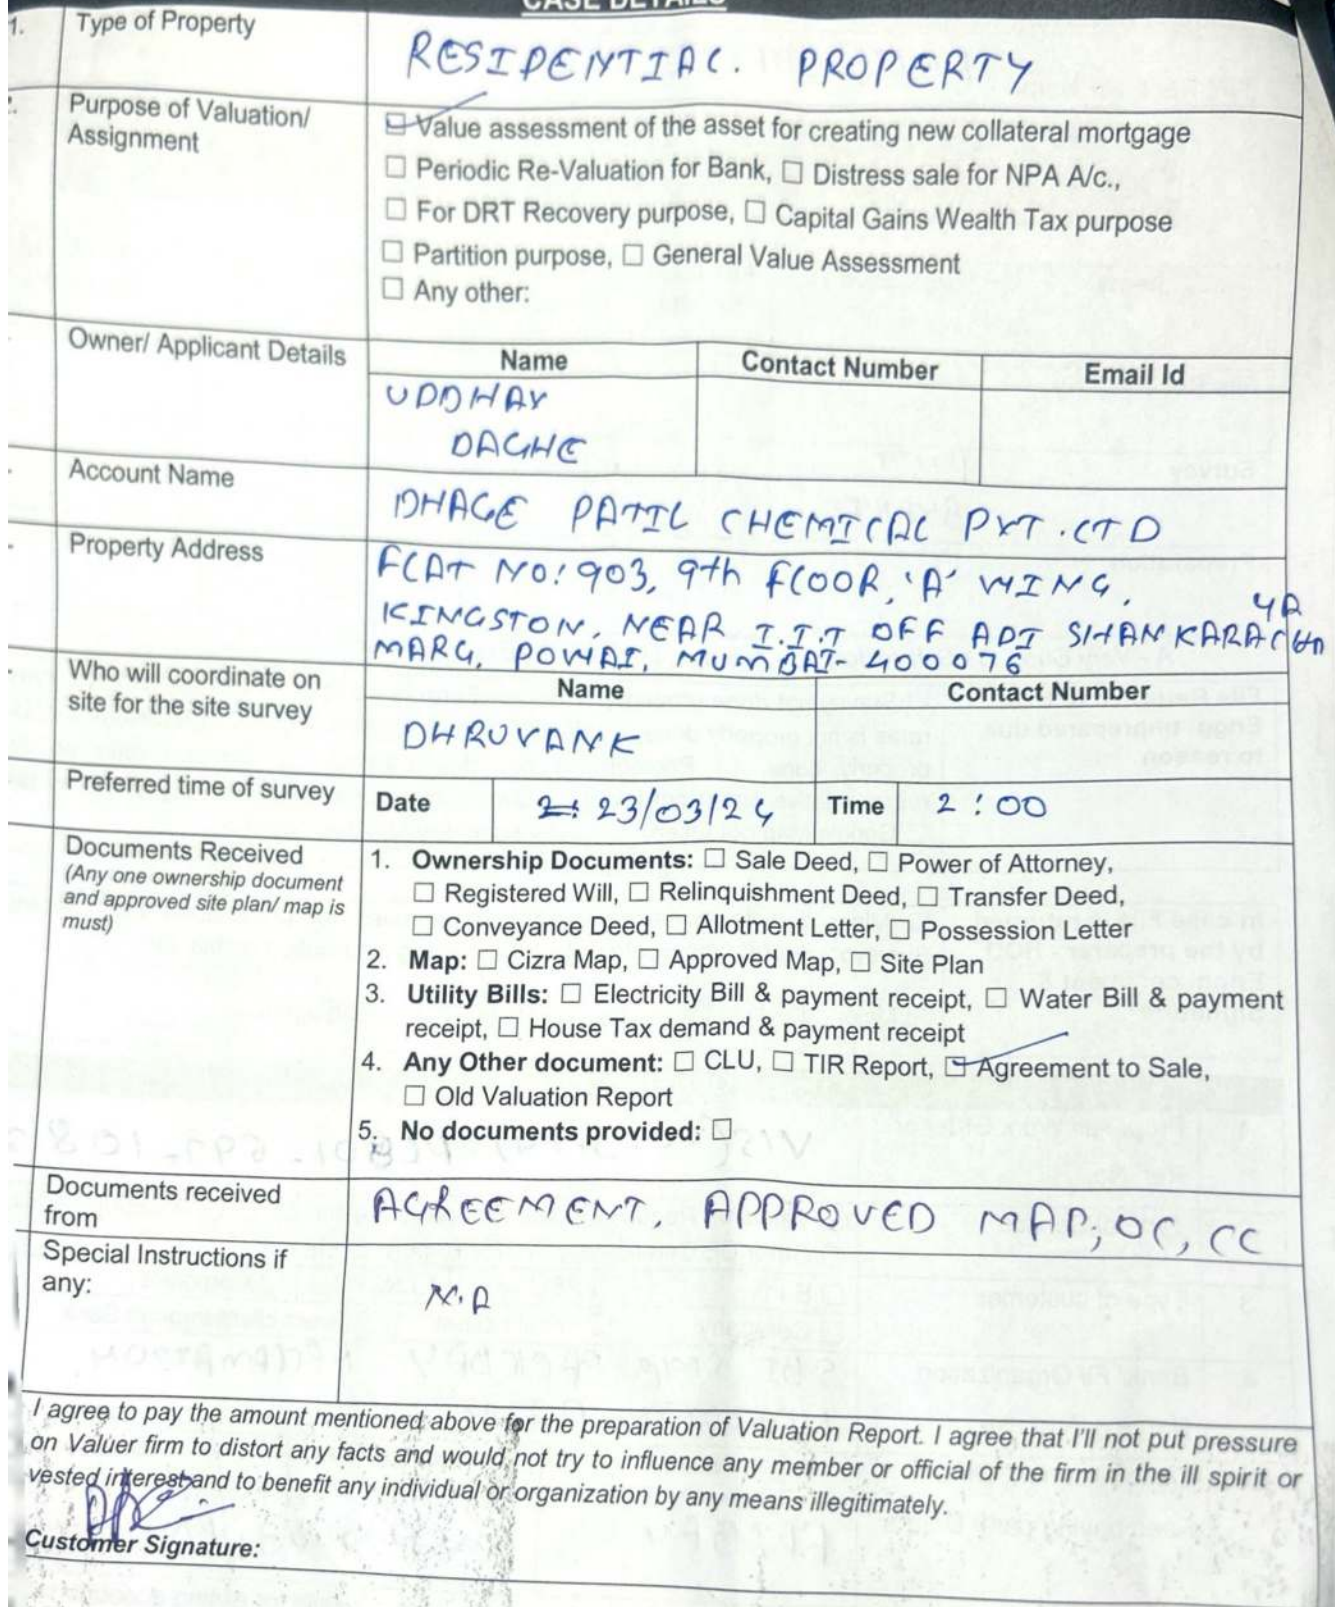 CASE DETAILS
1. Type of Property
RESIDENTIAL. PROPERTY
Purpose of Valuation/
Assignment
☑ Value assessment of the asset for creating new collateral mortgage
☐ Periodic Re-Valuation for Bank, ☐ Distress sale for NPA A/c.,
☐ For DRT Recovery purpose, ☐ Capital Gains Wealth Tax purpose
☐ Partition purpose, ☐ General Value Assessment
☐ Any other:
Owner/ Applicant Details
Name Contact Number Email Id
UDDHAV
DAGHE
Account Name
DHAGE PATIL CHEMICAL PVT. LTD
Property Address
FLAT NO: 903, 9th FLOOR, 'A' WING,
KINGSTON, NEAR I.I.T OFF ADI SHANKARACHA
YA
MARG, POWAI, MUMBAI- 400076
Who will coordinate on
site for the site survey
Name Contact Number
DHRUVANK
Preferred time of survey
Date 23/03/24 Time 2:00
Documents Received
(Any one ownership document
and approved site plan/ map is
must)
1. Ownership Documents: ☐ Sale Deed, ☐ Power of Attorney,
☐ Registered Will, ☐ Relinquishment Deed, ☐ Transfer Deed,
☐ Conveyance Deed, ☐ Allotment Letter, ☐ Possession Letter
2. Map: ☐ Cizra Map, ☐ Approved Map, ☐ Site Plan
3. Utility Bills: ☐ Electricity Bill & payment receipt, ☐ Water Bill & payment
receipt, ☐ House Tax demand & payment receipt
4. Any Other document: ☐ CLU, ☐ TIR Report, ☑ Agreement to Sale,
☐ Old Valuation Report
5. No documents provided: ☐
Documents received
from
AGREEMENT, APPROVED MAP, OC, CC
Special Instructions if
any:
N.A
I agree to pay the amount mentioned above for the preparation of Valuation Report. I agree that I'll not put pressure
on Valuer firm to distort any facts and would not try to influence any member or official of the firm in the ill spirit or
vested interest and to benefit any individual or organization by any means illegitimately.
Customer Signature: